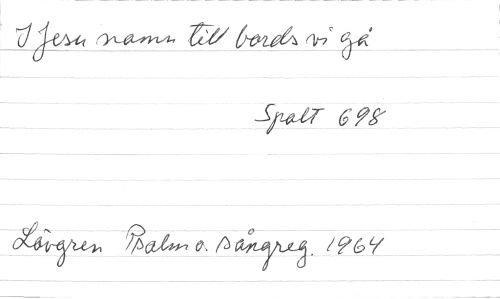 I Jesu namn till bords vi gå
Spalt 698
Lövgren Psalm o. sångreg. 1964